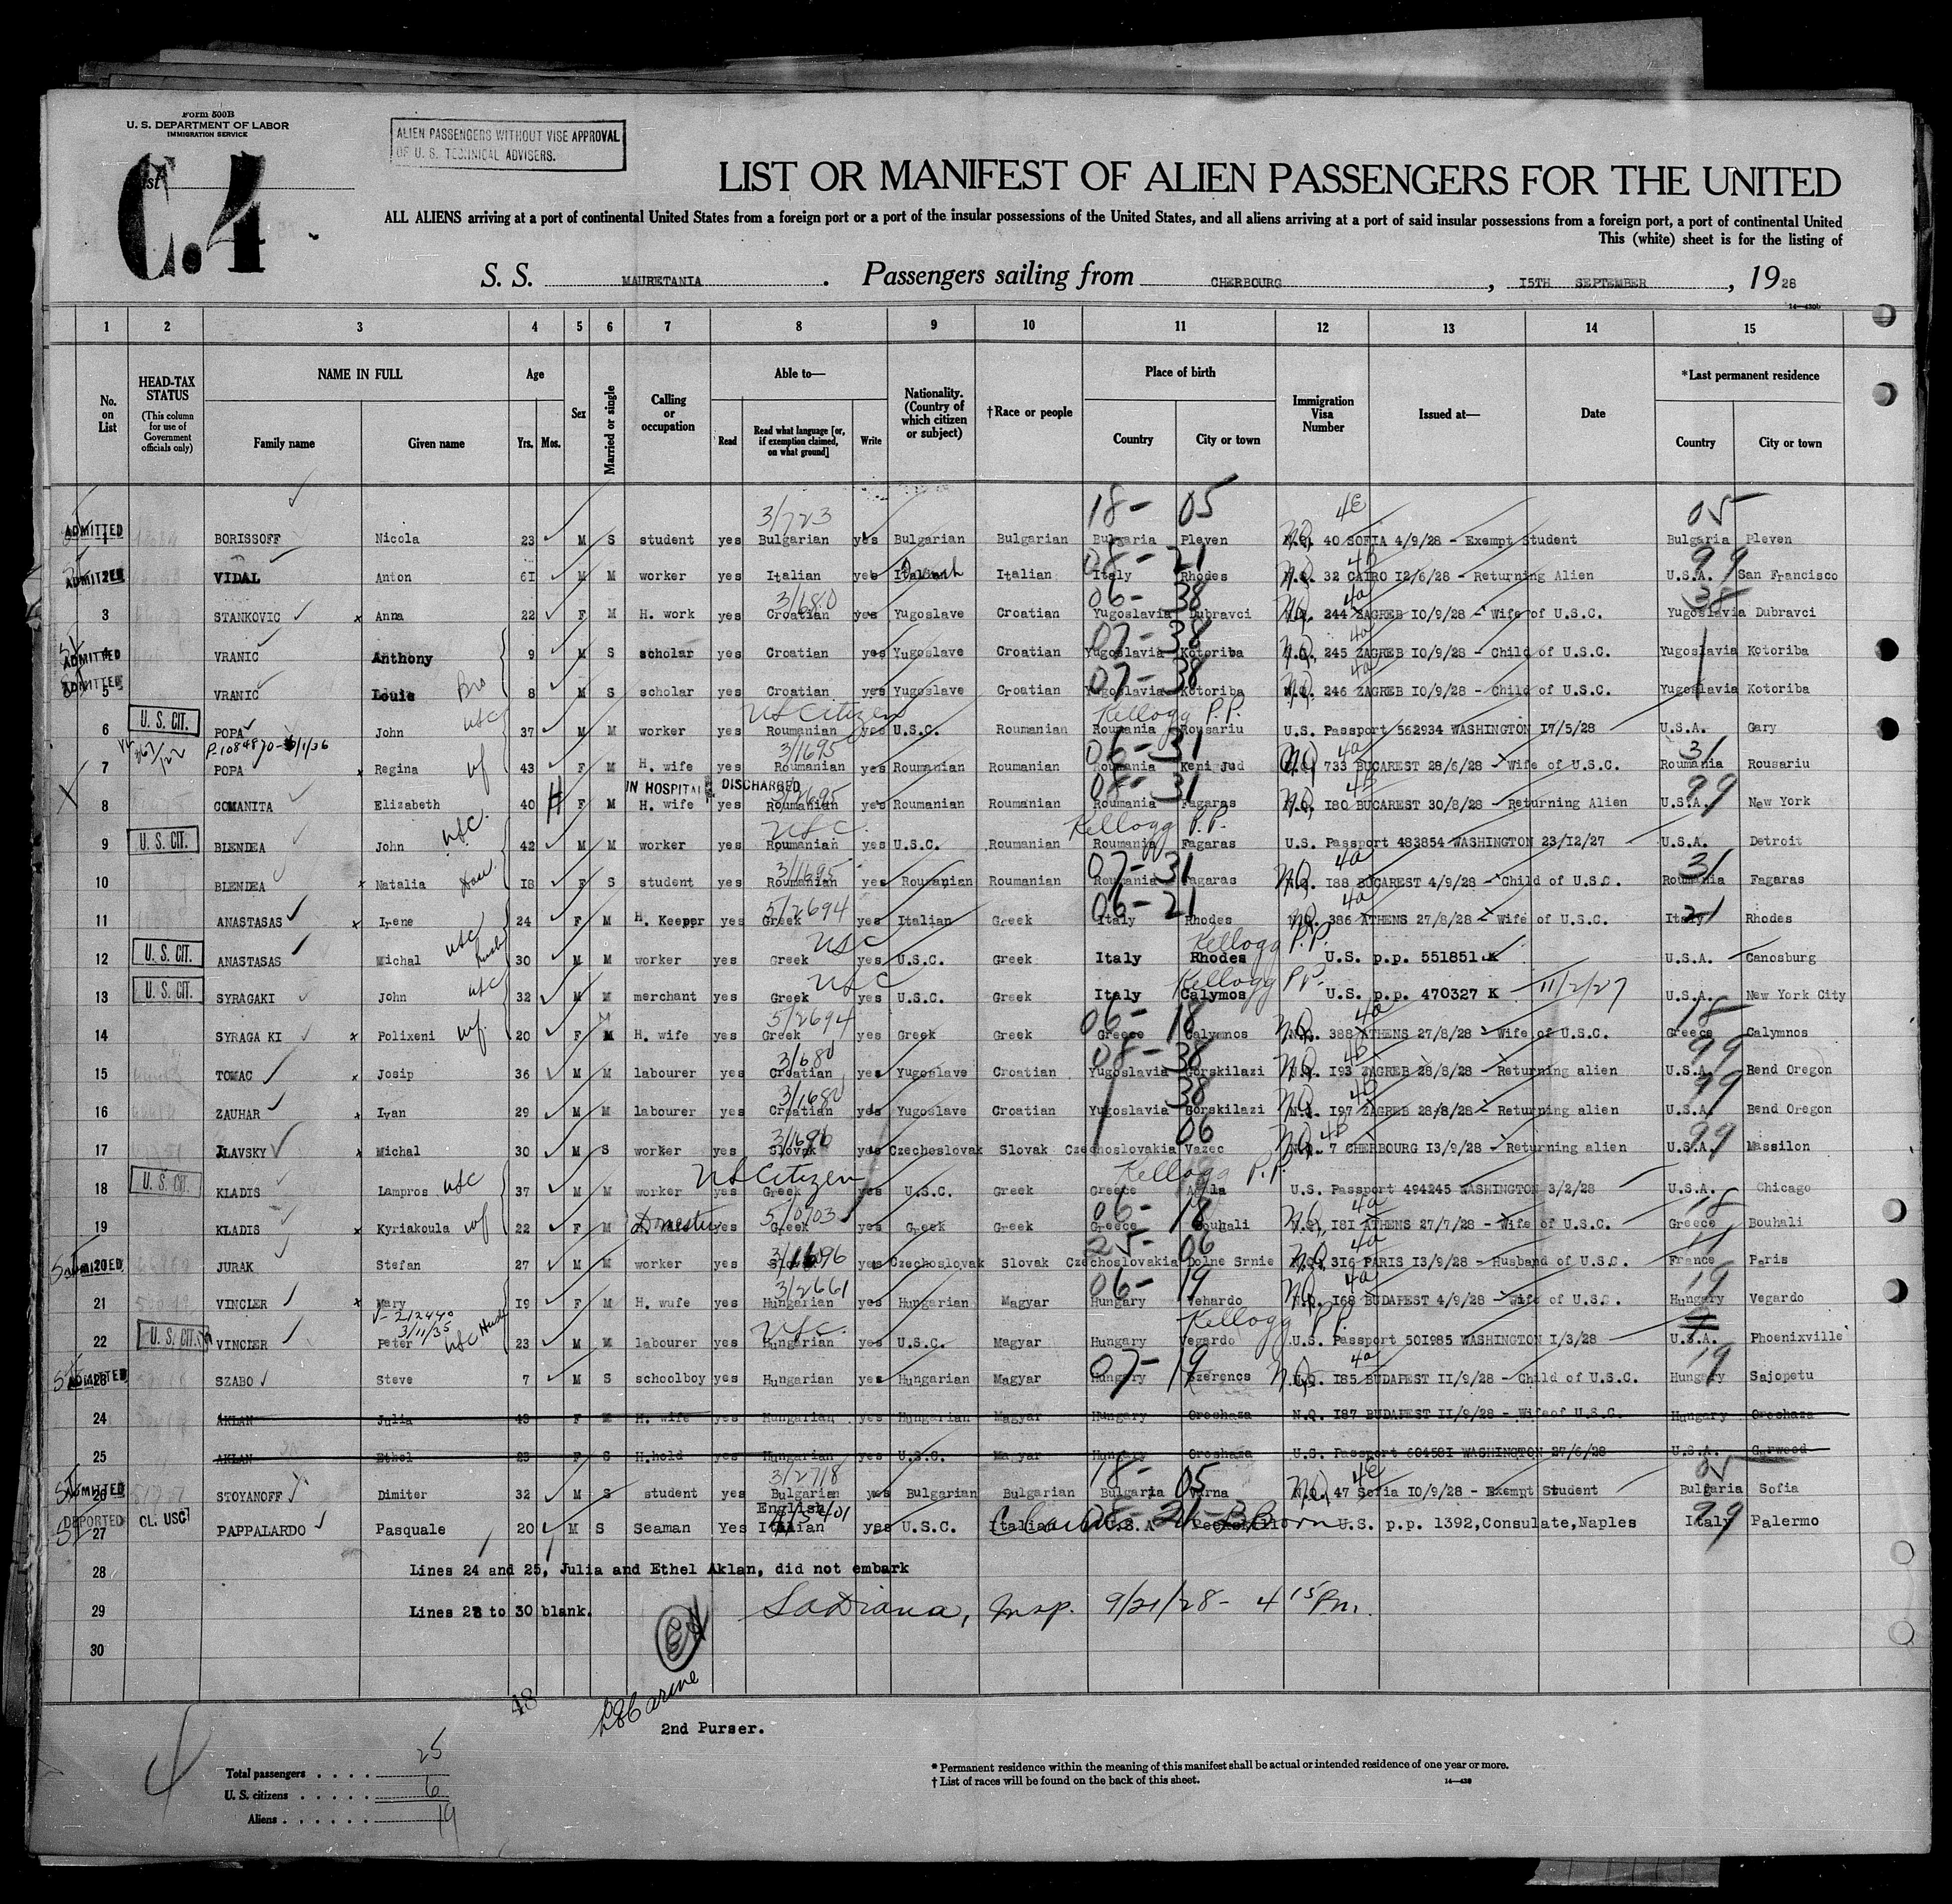 Form 500B
U. S. DEPARTMENT OF LABOR
IMMIGRATION SERVICE
C.4
ALIEN PASSENGERS WITHOUT VISE APPROVAL
OF U. S. TECHNICAL ADVISERS.
LIST OR MANIFEST OF ALIEN PASSENGERS FOR THE UNITED
ALL ALIENS arriving at a port of continental United States from a foreign port or a port of the insular possessions of the United States, and all aliens arriving at a port of said insular possessions from a foreign port, a port of continental United
This (white) sheet is for the listing of
S. S. MAURETANIA . Passengers sailing from CHERBOURG , I5TH SEPTEMBER , 1928
1 2 3 4 5 6 7 8 9 10 11 12 13 14 15
No. on List
HEAD-TAX STATUS (This column for use of Government officials only)
NAME IN FULL Family name Given name
Age Yrs. Mos.
Sex
Married or single
Calling or occupation
Able to— Read Read what language [or, if exemption claimed, on what ground] Write
Nationality. (Country of which citizen or subject)
†Race or people
Place of birth Country City or town
Immigration Visa Number
Issued at—
Date
*Last permanent residence Country City or town
3/723 18- 05 4E 05
ADMITTED 1 BORISSOFF Nicola 23 M S student yes Bulgarian yes Bulgarian Bulgarian Bulgaria Pleven N.Q. 40 SOFIA 4/9/28 - Exempt Student Bulgaria Pleven
08- 21 99
ADMITTED 2 VIDAL Anton 6I M M worker yes Italian yes Italian Italian Italy Rhodes N.Q. 32 CAIRO I2/6/28 - Returning Alien U.S.A. San Francisco
3/680 06- 38 4a 38
3 STANKOVIC x Anna 22 F M H. work yes Croatian yes Yugoslave Croatian Yugoslavia Dubravci N.Q. 244 ZAGREB I0/9/28 - Wife of U.S.C. Yugoslavia Dubravci
07- 38 4a
ADMITTED 4 VRANIC Anthony 9 M S scholar yes Croatian yes Yugoslave Croatian Yugoslavia Kotoriba N.Q. 245 ZAGREB I0/9/28 - Child of U.S.C. Yugoslavia Kotoriba
07- 38 4a
ADMITTED 5 VRANIC Louis Bro 8 M S scholar yes Croatian yes Yugoslave Croatian Yugoslavia Kotoriba N.Q. 246 ZAGREB I0/9/28 - Child of U.S.C. Yugoslavia Kotoriba
US Citizen Kellogg P.P.
6 U. S. CIT. POPA John USC 37 M M worker yes Roumanian yes U.S.C. Roumanian Roumania Rousariu U.S. Passport 562934 WASHINGTON I7/5/28 U.S.A. Gary
3/1695 06- 31 4a 31
7 POPA x Regina wf 43 F M H. wife yes Roumanian yes Roumanian Roumanian Roumania Keni Jud N.Q. 733 BUCAREST 28/6/28 - Wife of U.S.C. Roumania Rousariu
IN HOSPITAL DISCHARGED 08- 31 4B 99
8 COMANITA Elizabeth 40 H F M H. wife yes Roumanian yes Roumanian Roumanian Roumania Fagaras N.Q. I80 BUCAREST 30/8/28 - Returning Alien U.S.A. New York
USC Kellogg P.P.
9 U. S. CIT. BLENDEA John USC. 42 M M worker yes Roumanian yes U.S.C. Roumanian Roumania Fagaras U.S. Passport 483854 WASHINGTON 23/I2/27 U.S.A. Detroit
3/1695 07- 31 4a 31
10 BLENDEA x Natalia dau. I8 F S student yes Roumanian yes Roumanian Roumanian Roumania Fagaras N.Q. I88 BUCAREST 4/9/28 - Child of U.S.C. Roumania Fagaras
5/2694 06- 21 4a 21
11 ANASTASAS x Irene 24 F M H. Keeper yes Greek yes Italian Greek Italy Rhodes N.Q. 386 ATHENS 27/8/28 - Wife of U.S.C. Italy Rhodes
USC Kellogg P.P.
12 U. S. CIT. ANASTASAS Michal USC husb 30 M M worker yes Greek yes U.S.C. Greek Italy Rhodes U.S. p.p. 551851 K U.S.A. Canosburg
USC Kellogg P.P.
13 U. S. CIT. SYRAGAKI John USC 32 M M merchant yes Greek yes U.S.C. Greek Italy Calymos U.S. p.p. 470327 K 11/2/27 U.S.A. New York City
5/2694 06- 18 4a 18
14 SYRAGA KI x Polixeni wf. 20 F M H. wife yes Greek yes Greek Greek Greece Calymnos N.Q. 388 ATHENS 27/8/28 - Wife of U.S.C. Greece Calymnos
3/680 08- 38 4B 99
15 TOMAC x Josip 36 M M labourer yes Croatian yes Yugoslave Croatian Yugoslavia Gorskilazi N.Q. I93 ZAGREB 28/8/28 - Returning alien U.S.A. Bend Oregon
3/1680 38 4B 99
16 ZAUHAR x Ivan 29 M M labourer yes Croatian yes Yugoslave Croatian Yugoslavia Gorskilazi N.Q. I97 ZAGREB 28/8/28 - Returning alien U.S.A. Bend Oregon
3/1696 06 4B 99
17 ILAVSKY x Michal 30 M S worker yes Slovak yes Czechoslovak Slovak Czechoslovakia Vazec N.Q. 7 CHERBOURG I3/9/28 - Returning alien U.S.A. Massilon
US Citizen Kellogg P.P.
18 U. S. CIT. KLADIS Lampros USC 37 M M worker yes Greek yes U.S.C. Greek Greece U.S. Passport 494245 WASHINGTON 3/2/28 U.S.A. Chicago
5/0703 06- 18 4a 18
19 KLADIS Kyriakoula wf 22 F M Domestic yes Greek yes Greek Greek Greece Bouhali N.Q. I8I ATHENS 27/7/28 - Wife of U.S.C. Greece Bouhali
3/1696 25- 06 4a
ADMITTED 20 JURAK Stefan 27 M M worker yes Slovak yes Czechoslovak Slovak Czechoslovakia Dolne Srnie N.Q. 3I6 PARIS I3/9/28 - Husband of U.S.C. France Paris
3/2661 06- 19 4a 19
21 VINCLER x Mary I9 F M H. wufe yes Hungarian yes Hungarian Magyar Hungary Vehardo N.Q. I68 BUDAPEST 4/9/28 - Wife of U.S.C. Hungary Vegardo
3/11/35 USC. Kellogg P.P.
22 U. S. CIT. VINCLER Peter USC Husb 23 M M labourer yes Hungarian yes U.S.C. Magyar Hungary Vegardo U.S. Passport 50I985 WASHINGTON I/3/28 U.S.A. Phoenixville
07- 19 4a 19
ADMITTED 23 SZABO Steve 7 M S schoolboy yes Hungarian yes Hungarian Magyar Hungary Szerencs N.Q. I85 BUDAPEST II/9/28 - Child of U.S.C. Hungary Sajopetu
24 AKLAN Julia 43 F M H. wife yes Hungarian yes Hungarian Magyar Hungary Oroshaza N.Q. I87 BUDAPEST II/9/28 - Wifeof U.S.C. Hungary Oroshaza
25 AKLAN Ethel 23 F S H.hold yes Hungarian yes U.S.C. Magyar Hungary Oroshaza U.S. Passport 60458I WASHINGTON 27/6/28 U.S.A. Garwood
3/2718 18- 05 4E 05
ADMITTED 26 STOYANOFF Dimiter 32 M S student yes Bulgarian yes Bulgarian Bulgarian Bulgaria Varna N.Q. 47 Sofia I0/9/28 - Exempt Student Bulgaria Sofia
DEPORTED CL. USC English 99
27 PAPPALARDO Pasquale 20 M S Seaman Yes Italian yes U.S.C. Italian U.S.A U.S. p.p. 1392,Consulate,Naples Italy Palermo
28 Lines 24 and 25, Julia and Ethel Aklan, did not embark
29 Lines 28 to 30 blank. LaDiana, Insp. 9/21/28 - 4 15 Pm.
30
48
2nd Purser.
Total passengers . . . . 25
U. S. citizens . . . . . 6
Aliens . . . . . . 19
* Permanent residence within the meaning of this manifest shall be actual or intended residence of one year or more.
† List of races will be found on the back of this sheet.